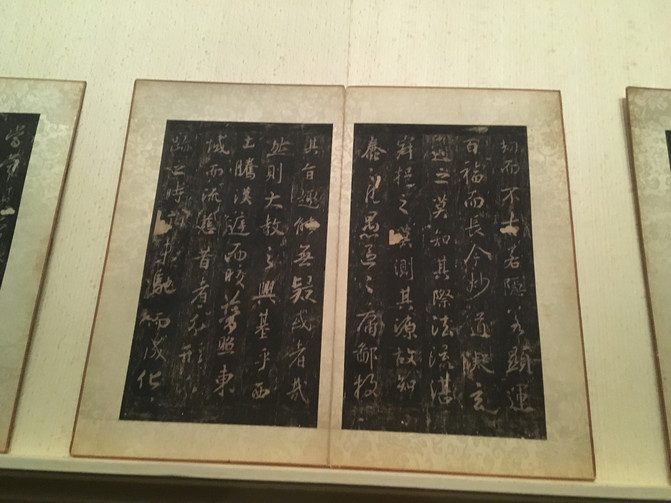 劫而不古若隱若顯運
百福而長今妙道凝玄
遵之莫知其際法流湛
寂挹之莫測其源故知
蠢凡愚區區庸鄙投
其旨趣能無疑惑者哉
然則大教之興基乎西
土騰漢庭而皎夢照東
域而流慈昔者分形分
跡之時言未馳而成化
當常